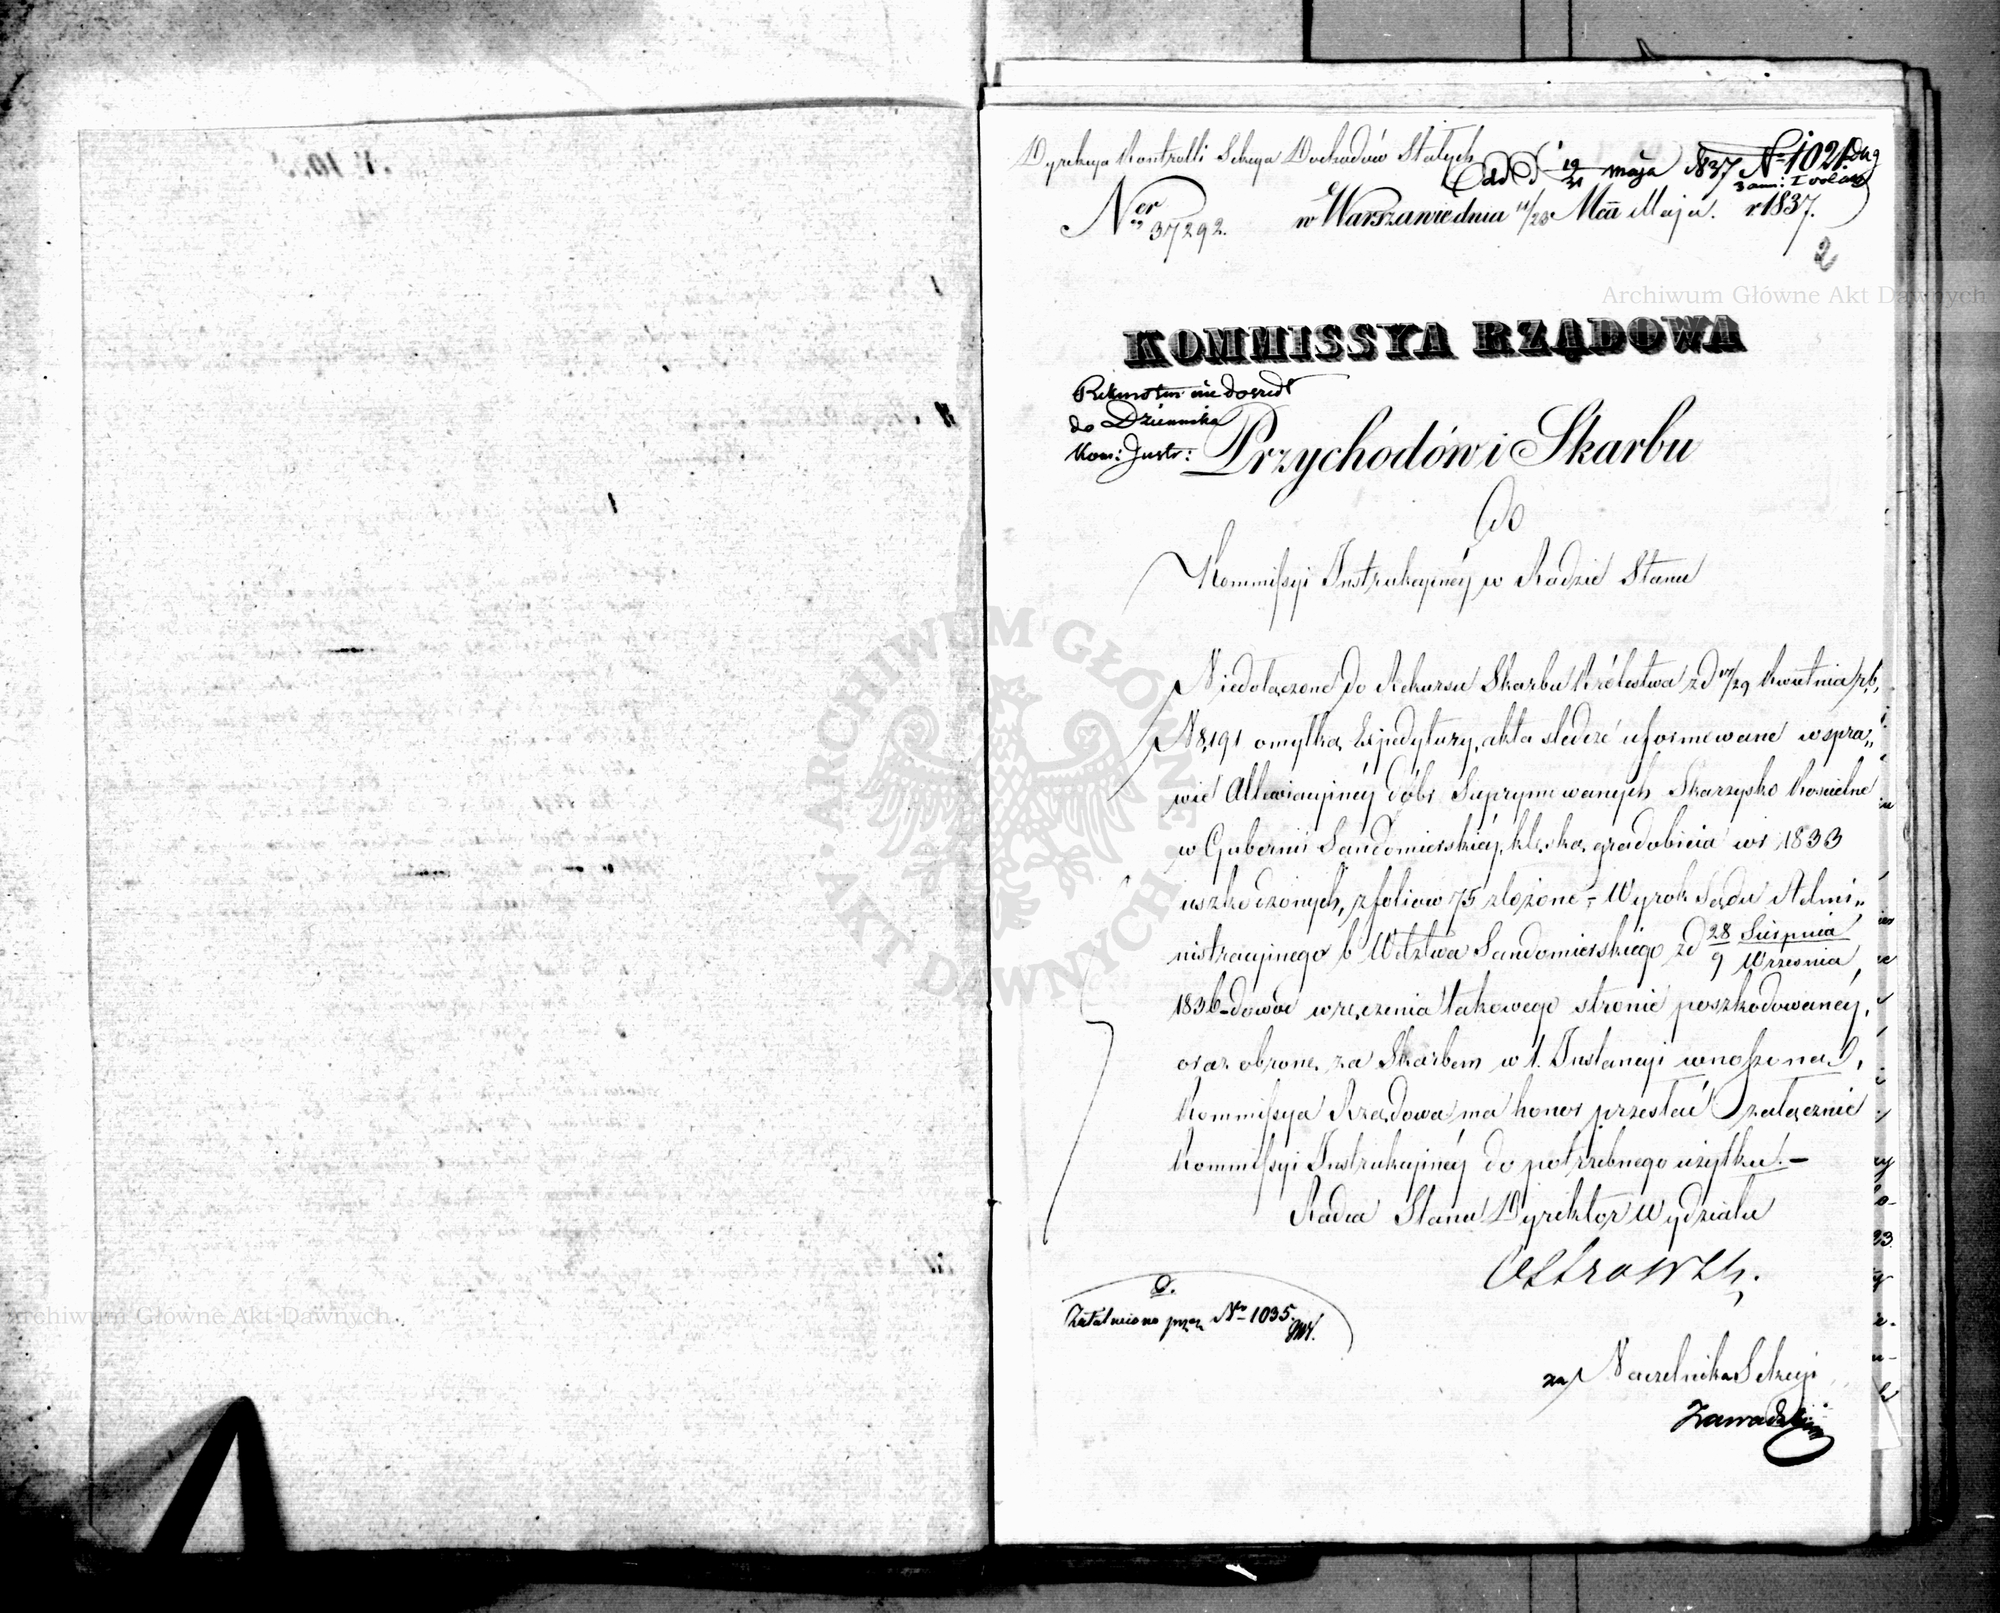 Dyrekcya Kontrolli Sekcya Dochodów Stałych
odd 19/31 maja 1837 N 1021
Ner 37292. w Warszawie dnia 11/23 Mca Maja. r 1837.
2
KOMMISSYA RZĄDOWA
nie doszedł
do Dziennika
Kom: Instr:
Przychodów i Skarbu
Do
Kommissyi Instrukcyinéy w Radzie Stanu
Niedołączone do Rekursu Skarbu Królestwa z d 17/29 Kwietnia r.b.
N 8,191 omyłką Expedytury, akta śledcze uformowane w spra„
wie Allewiacyinéy dóbr Suprymowanych Skarzysko Koscielne
w Gubernii Sandomierskiéy, klęską gradobicia w r 1833
uszkodzonych, z foliow 75 złożone – Wyrok Sądu Admi„
nistracyinego b Wdztwa Sandomierskiego z d 28 Sierpnia / 9 Wrzesnia
1836 – dowod wręczenia takowego stronie poszkodowanéy,
oraz obronę za Skarbem w 1. Instancyi wnoszoną,
Kommissya Rządowa ma honor przesłać w załączeniu
Kommissyi Instrukcyinéy do potrzebnego użytku. –
Radca Stanu Dyrektor Wydziału
Ostrowski.
D.
Załatwiono przez Nr 1035.
za Naczelnika Sekcyi
Zawadzki
Archiwum Główne Akt Dawnych
Archiwum Główne Akt Dawnych
ARCHIWUM GŁÓWNE AKT DAWNYCH